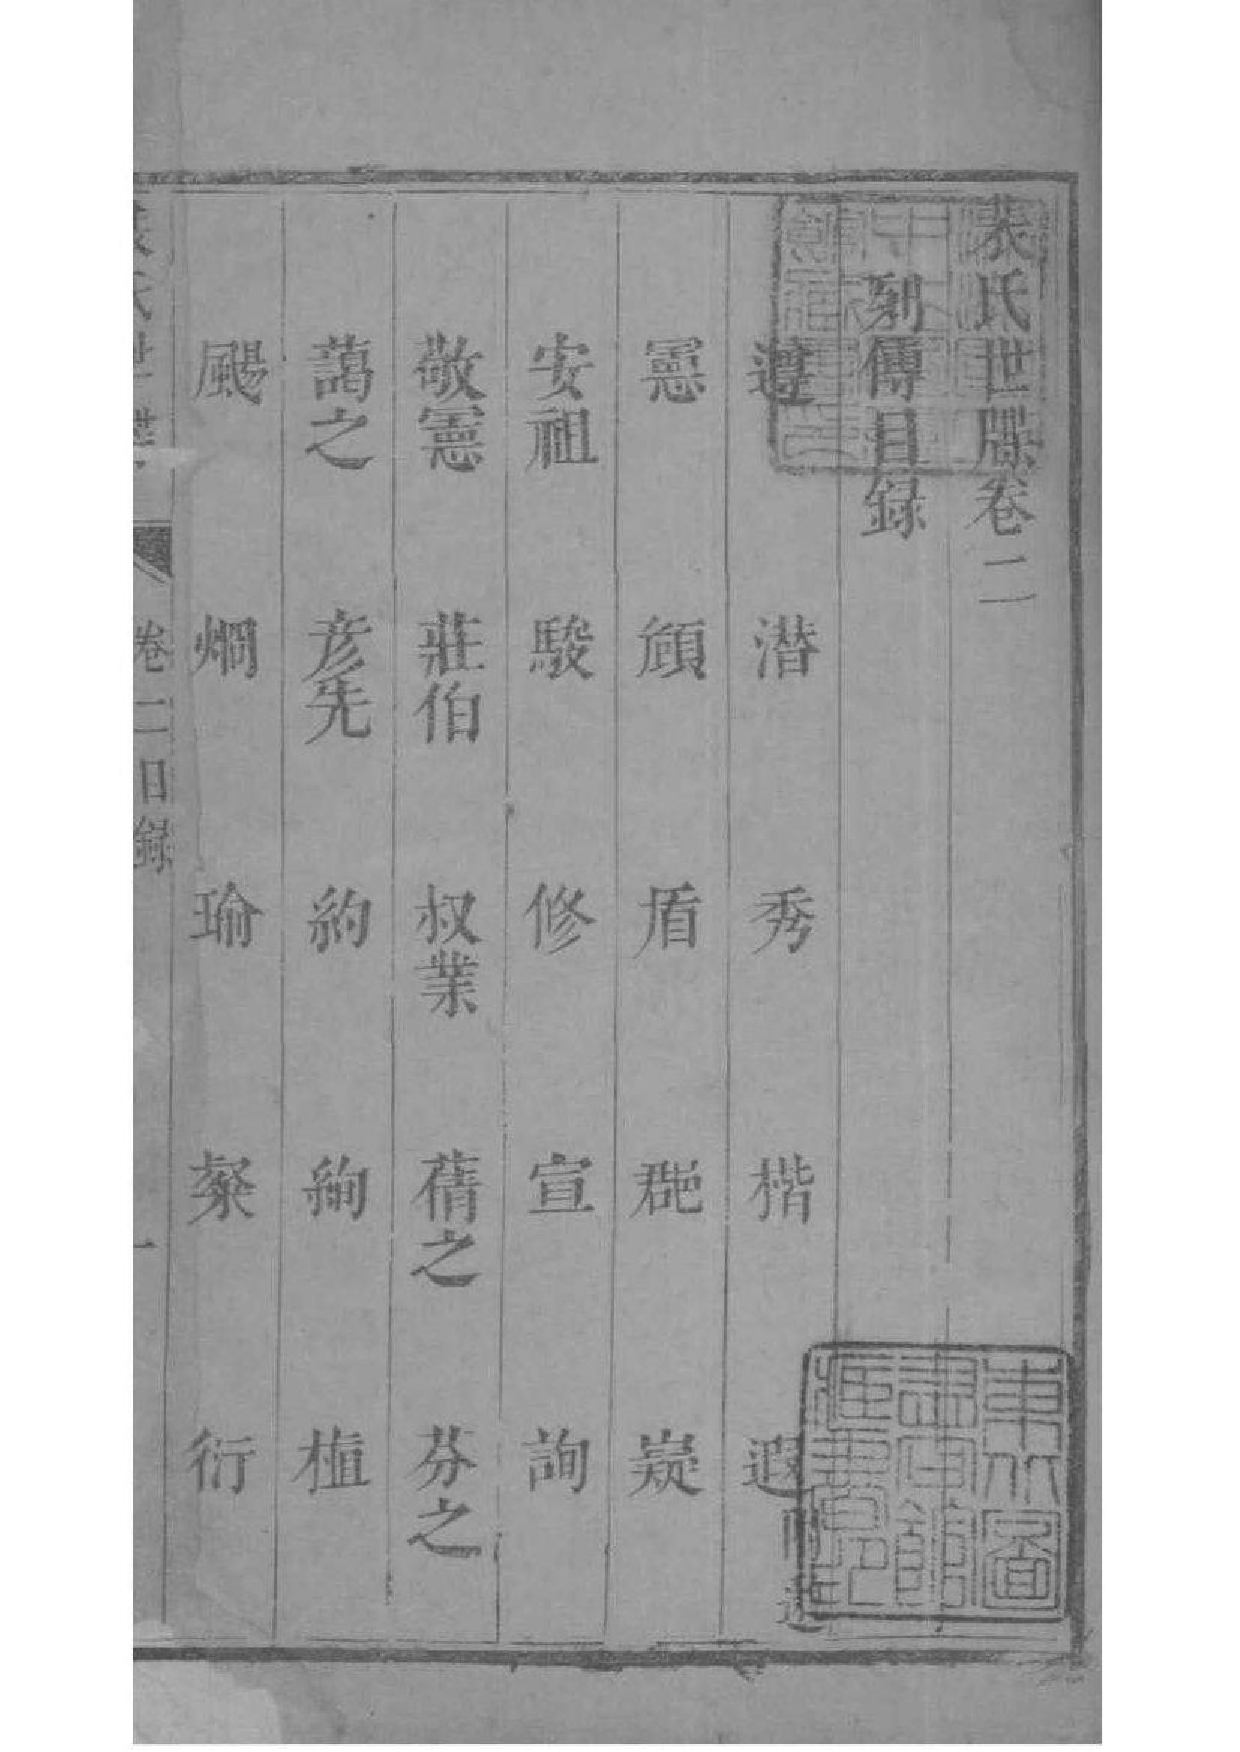 裴氏世牒卷二
列傳目錄
遵 潛 秀 楷 遐附遊
憲 頠 盾 邈 嶷
安祖 駿 修 宣 詢
敬憲 莊伯 叔業 蒨之 芬之
藹之 彥先 約 絢 植
颺 烱 瑜 粲 衍
裴氏世牒 卷二目錄 一